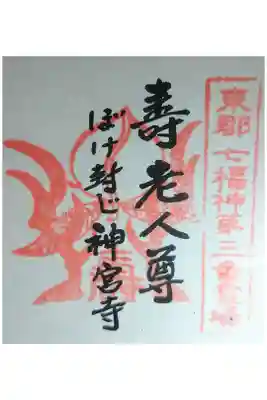 東郡七福神第三番霊場
寿老人尊
ぼけ封じ神宮寺